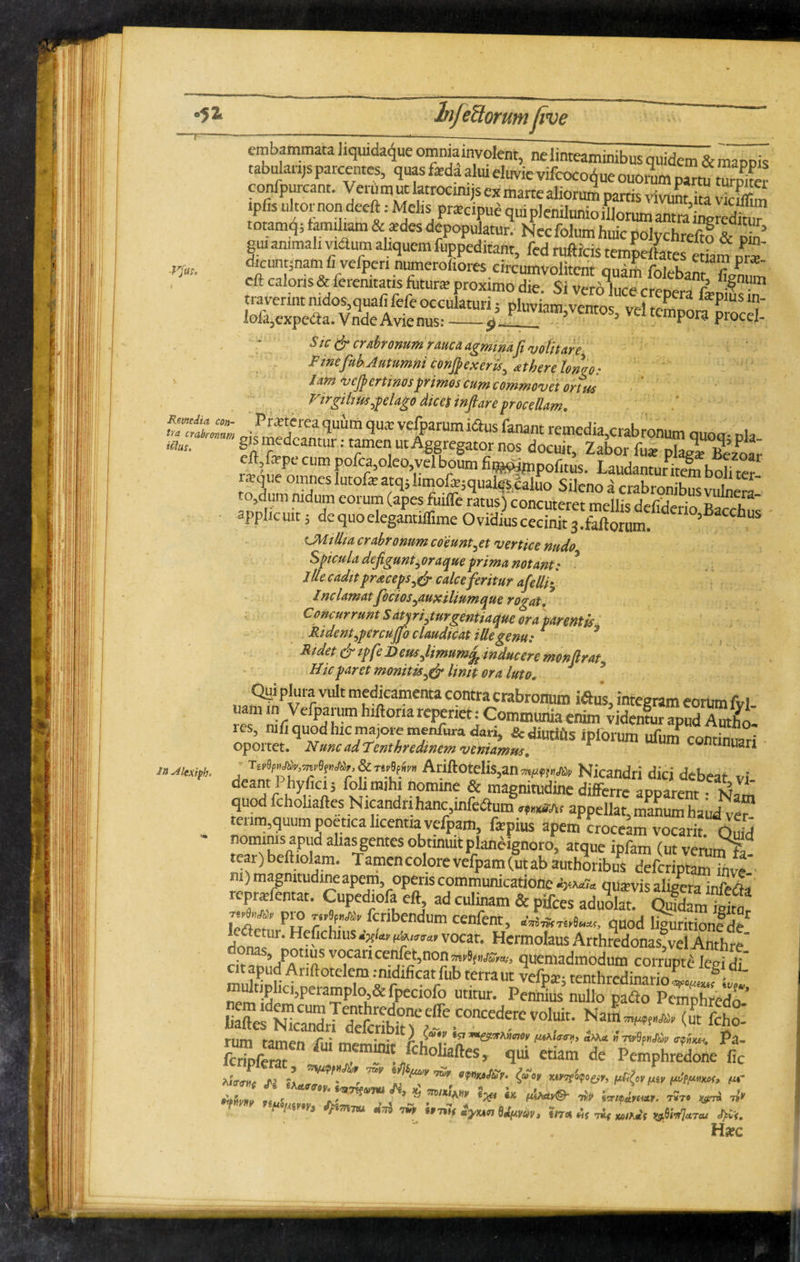 52 Insectorum sive
embammata liquidaque omnia involent, ne linteaminibus quidem & mappis
tabularijs parcentes, quas fæda alui eluvie viscocoque ouorum partu turpiter
conspurcant. Verùm ut latrocinijs ex marte aliorum partis vivunt, ita vicissim
ipsis ultor non deest: Melis præcipuè qui plenilunio illorum antra ingreditur,
totamq; familiam & ædes depopulatur. Nec solum huic polychresto & pin-
gui animali victum aliquem suppeditant, sed rusticis tempestates etiam præ-
Usus.
dicunt; nam si vesperi numerosiores circumvolitent quàm solebant, signum
est caloris & serenitatis futuræ proximo die. Si verò luce crepera sæpius in-
traverint nidos, quasi sese occulaturi; pluviam, ventos, vel tempora procel-
losa, expecta. Unde Avienus:
Sic & crabronum rauca agmina si volitare,
Fine sub Autumni conspexeris, æthere longo:
Iam vespertinos primos cum commovet ortus
Virgilius, pelago dices instare procellam.
Remedia con-
tra crabronum
ictus.
Præterea quùm quæ vesparum ictus sanant remedia, crabronum quoq; pla-
gis medeantur: tamen ut Aggregator nos docuit, Zabor suæ plagæ Bezoar
est, sæpe cum posca, oleo, vel boum fimo impositus. Laudantur item boli ter-
ræque omnes lutosæ atq; limosæ; quales caluo Sileno à crabronibus vulnera-
to, dum nidum eorum (apes fuisse ratus) concuteret mellis desiderio, Bacchus
applicuit; de quo elegantissime Ovidius cecinit 3. fastorum.
Millia crabronum coëunt, et vertice nudo
Spicula defigunt, oraque prima notant:
Ille cadit præceps, & calce feritur aselli;
Inclamat socios, auxiliumque rogat.
Concurrunt Satyri, turgentiaque ora parentis
Rident, percusso claudicat ille genu:
Ridet & ipse Deus, limumq; inducere monstrat,
Hic paret monitis, & linit ora luto.
Qui plura vult medicamenta contra crabronum ictus, integram eorum syl-
uam in Vesparum historia reperiet: Communia enim videntur apud Autho-
res, nisi quod hic majore mensura dari, & diutiùs ipsorum usum continuari
oportet. Nunc ad Tenthredinem veniamus.
In Alexiph.
& Aristotelis, an Nicandri dici debeat, vi-
deant Physici; soli mihi nomine & magnitudine differre apparent: Nam
quod scholiastes Nicandri hanc, insectum appellat, manum haud ver-
terim, quum poëtica licentia vespam, sæpius apem croceam vocarit. Quid
nominis apud alias gentes obtinuit planè ignoro, atque ipsam (ut verum fa-
tear) bestiolam. Tamen colore vespam (ut ab authoribus descriptam inve-
ni) magnitudine apem, operis communicatione quævis aligera insecta
repræsentat. Cupediosa est, ad culinam & pisces aduolat. Quidam igitur
pro scribendum censent, quòd liguritione de-
lectetur. Hesichius vocat. Hermolaus Arthredonas, vel Anthre-
donas, potius vocari censet, non quemadmodum corruptè legi di-
cit apud Aristotelem: nidificat sub terra ut vespæ; tenthredinario
multiplici, peramplo, & specioso utitur. Pennius nullo pacto Pemphredo-
nem idem cum Tenthredone esse concedere voluit. Nam (ut scho-
liastes Nicandri describit)
rum tamen sui meminit scholiastes, qui etiam de Pemphredone sic
scripserat,
Hæc